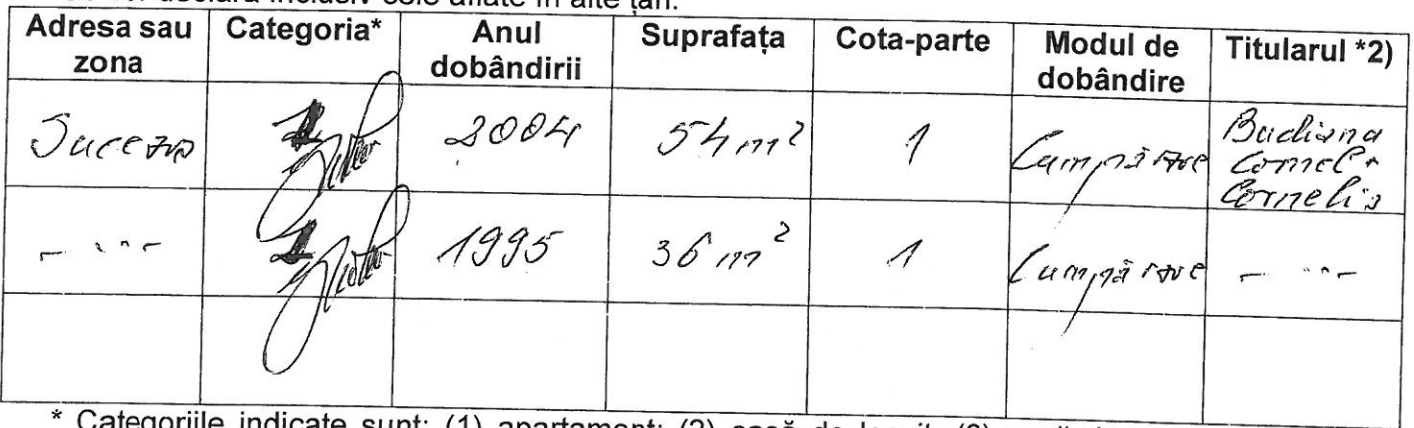 declara inclusiv cele aflate în alte țări.
Adresa sau zona Categoria* Anul dobândirii Suprafața Cota-parte Modul de dobândire Titularul *2)
Suceava 1 2004 54 m² 1 Cumpărare Budișna Cornel + Cornelia
— " — 1 1995 36 m² 1 Cumpărare — " —
* Categoriile indicate sunt: (1) apartament; (2) casă de locuit; (3)